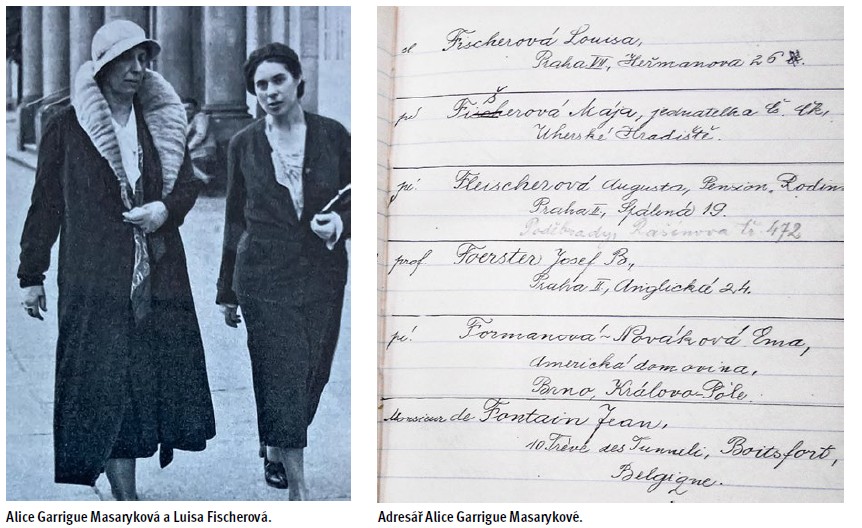 sl Fischerová Louisa,
Praha VII, Heřmanova 26
pí Fišerová Mája, jednatelka Č. čk,
Uherské Hradiště.
pí. Fleischerová Augusta, Penzion "Rodin
Praha II, Spálená 19.
Poděbrady, Rašínova tř. 472
prof. Foerster Josef B.,
Praha II, Anglická 24.
pí. Formanová-Nováková Ema,
Americká domovina,
Brno, Královo-Pole.
Monsieur de Fontain Jean,
10 Trève des Tunneli, Boitsfort,
Belgique.
Alice Garrigue Masaryková a Luisa Fischerová.
Adresář Alice Garrigue Masarykové.